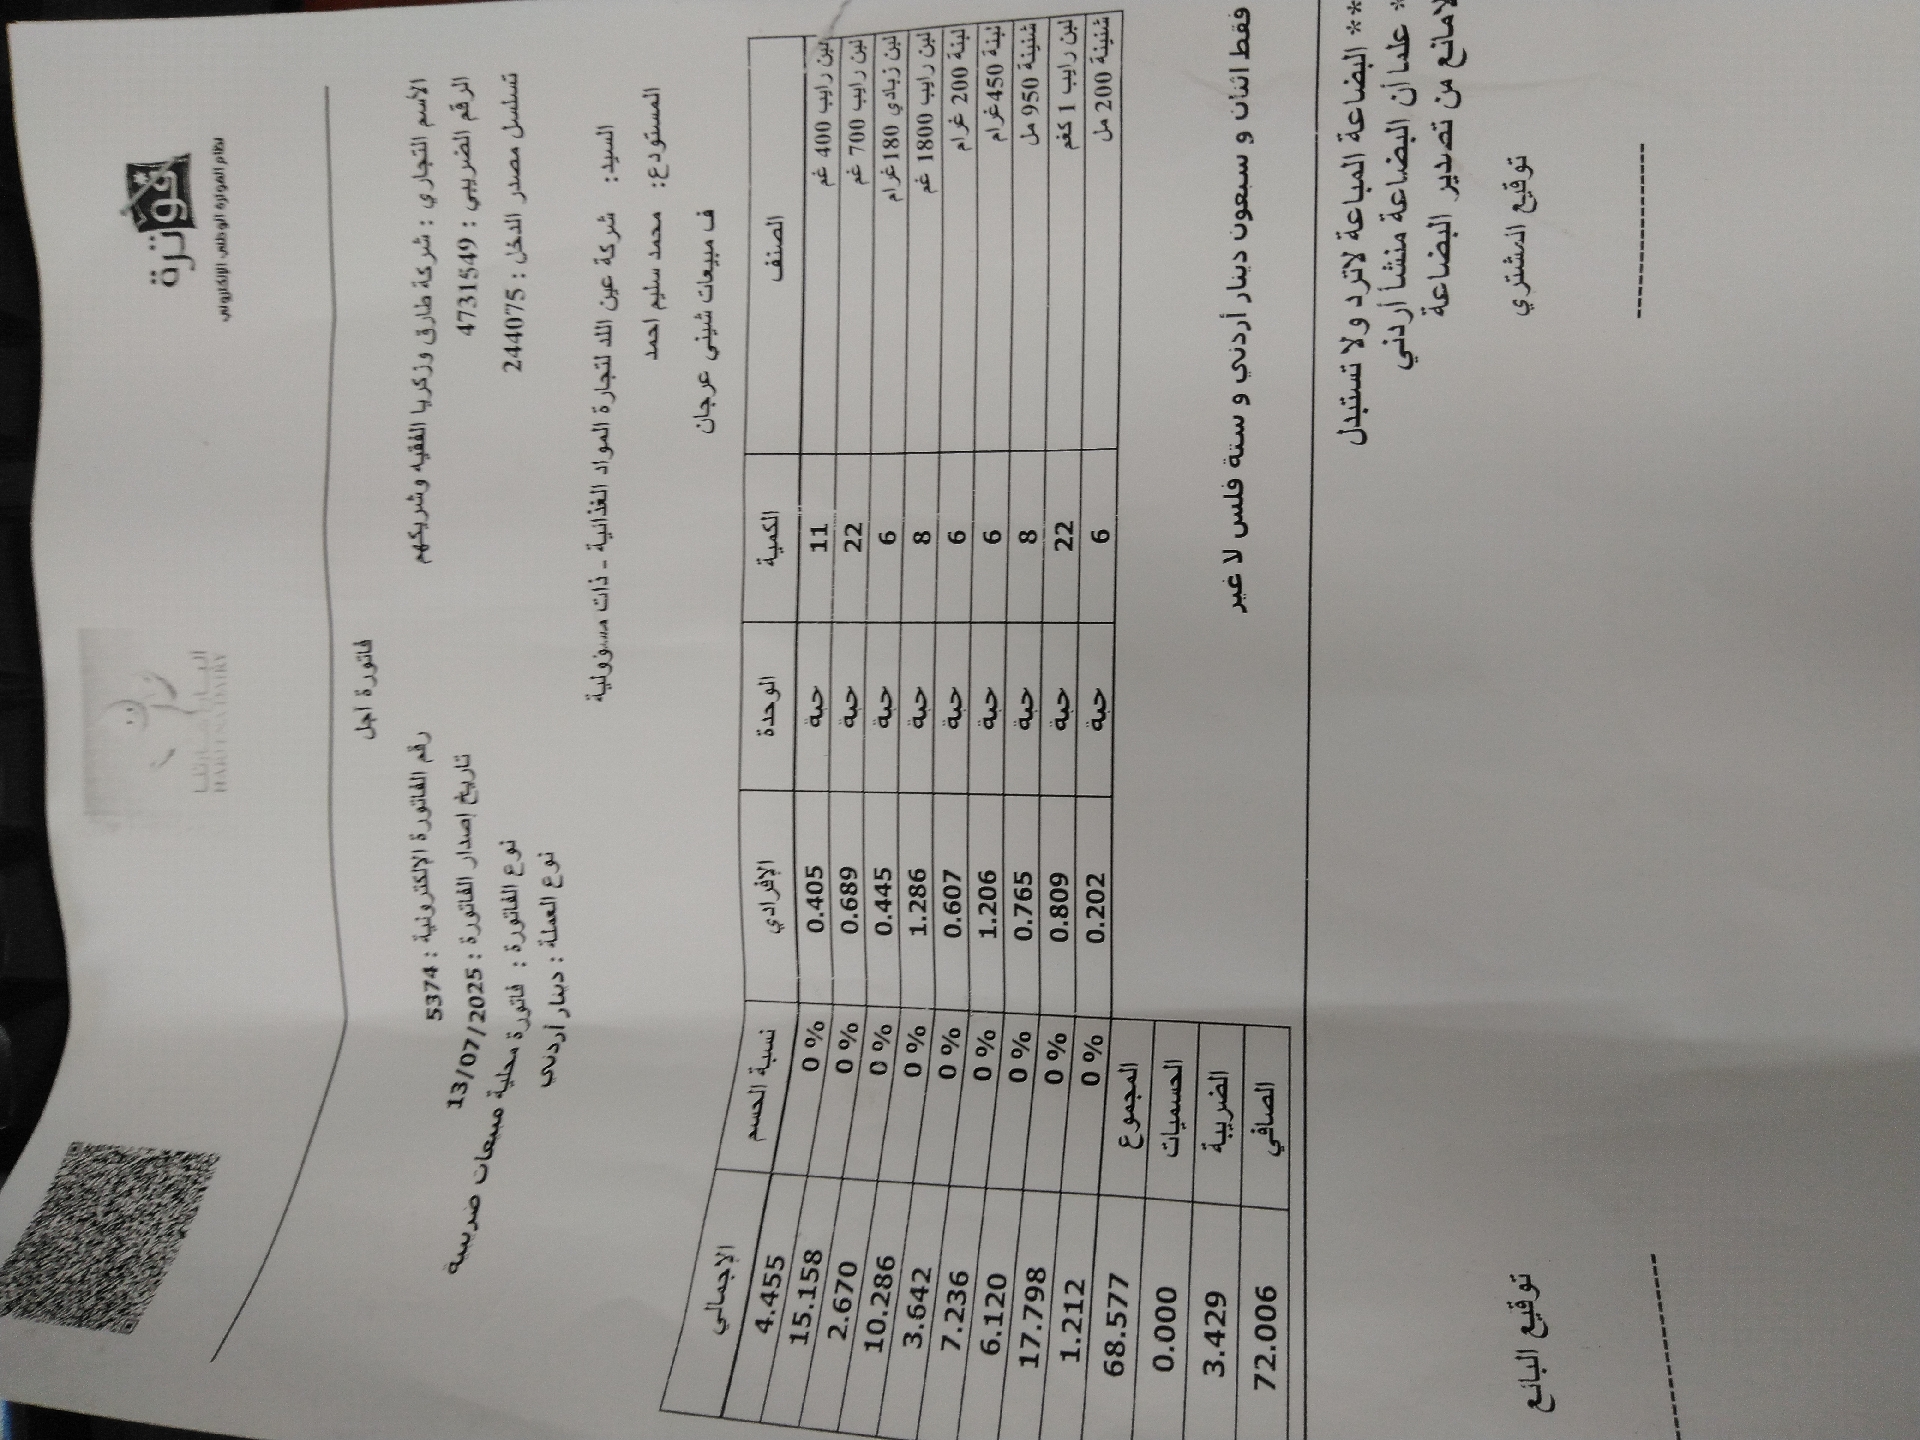 فوترة
نظام الفوترة الوطني الإلكتروني
HARETNA DAIRY
فاتورة اجل
الأسم التجاري : شركة طارق وزكريا الفقيه وشريكهم
الرقم الضريبي : 4731549
تسلسل مصدر الدخل : 244075
رقم الفاتورة الإلكترونية : 5374
تاريخ إصدار الفاتورة : 13/07/2025
نوع الفاتورة : فاتورة محلية مبيعات ضريبية
نوع العملة : دينار أردني
السيد: شركة عين اللد لتجارة المواد الغذائية - ذات مسؤولية
المستودع: محمد سليم احمد
ف مبيعات شيني عرجان
الصنف الكمية الوحدة الإفرادي نسبة الحسم الإجمالي
لبن رايب 400 غم 11 حبة 0.405 0 % 4.455
لبن رايب 700 غم 22 حبة 0.689 0 % 15.158
لبن زبادي 180غرام 6 حبة 0.445 0 % 2.670
لبن رايب 1800 غم 8 حبة 1.286 0 % 10.286
لبنة 200 غرام 6 حبة 0.607 0 % 3.642
لبنة 450غرام 6 حبة 1.206 0 % 7.236
شنينة 950 مل 8 حبة 0.765 0 % 6.120
لبن رايب 1 كغم 22 حبة 0.809 0 % 17.798
شنينة 200 مل 6 حبة 0.202 0 % 1.212
المجموع 68.577
الحسميات 0.000
الضريبة 3.429
الصافي 72.006
فقط اثنان و سبعون دينار أردني و ستة فلس لا غير
** البضاعة المباعة لاترد ولا تستبدل
* علما أن البضاعة منشأ أردني
لامانع من تصدير البضاعة
توقيع المشتري
توقيع البائع